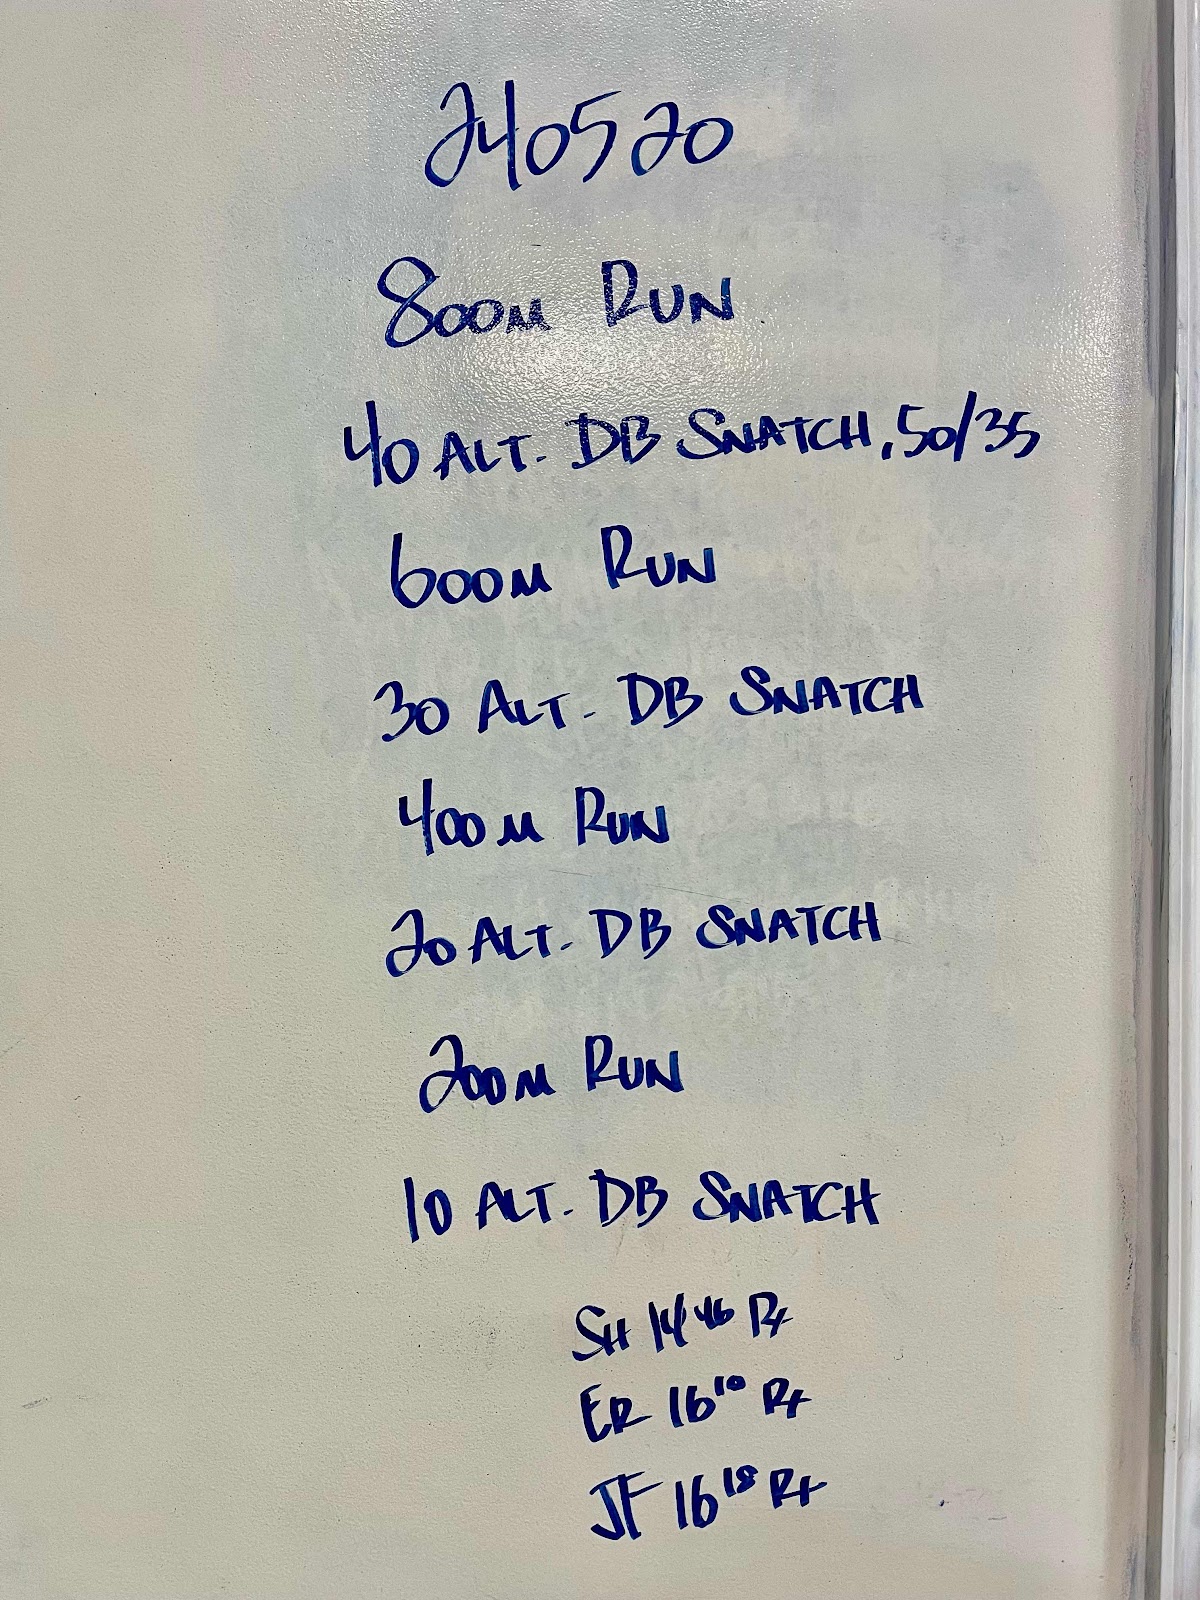 240520
800M RUN
40 ALT. DB SNATCH, 50/35
600M RUN
30 ALT. DB SNATCH
400M RUN
20 ALT. DB SNATCH
200M RUN
10 ALT. DB SNATCH
SH 14 46 Rx
ER 16 10 Rx
JF 16 18 Rx